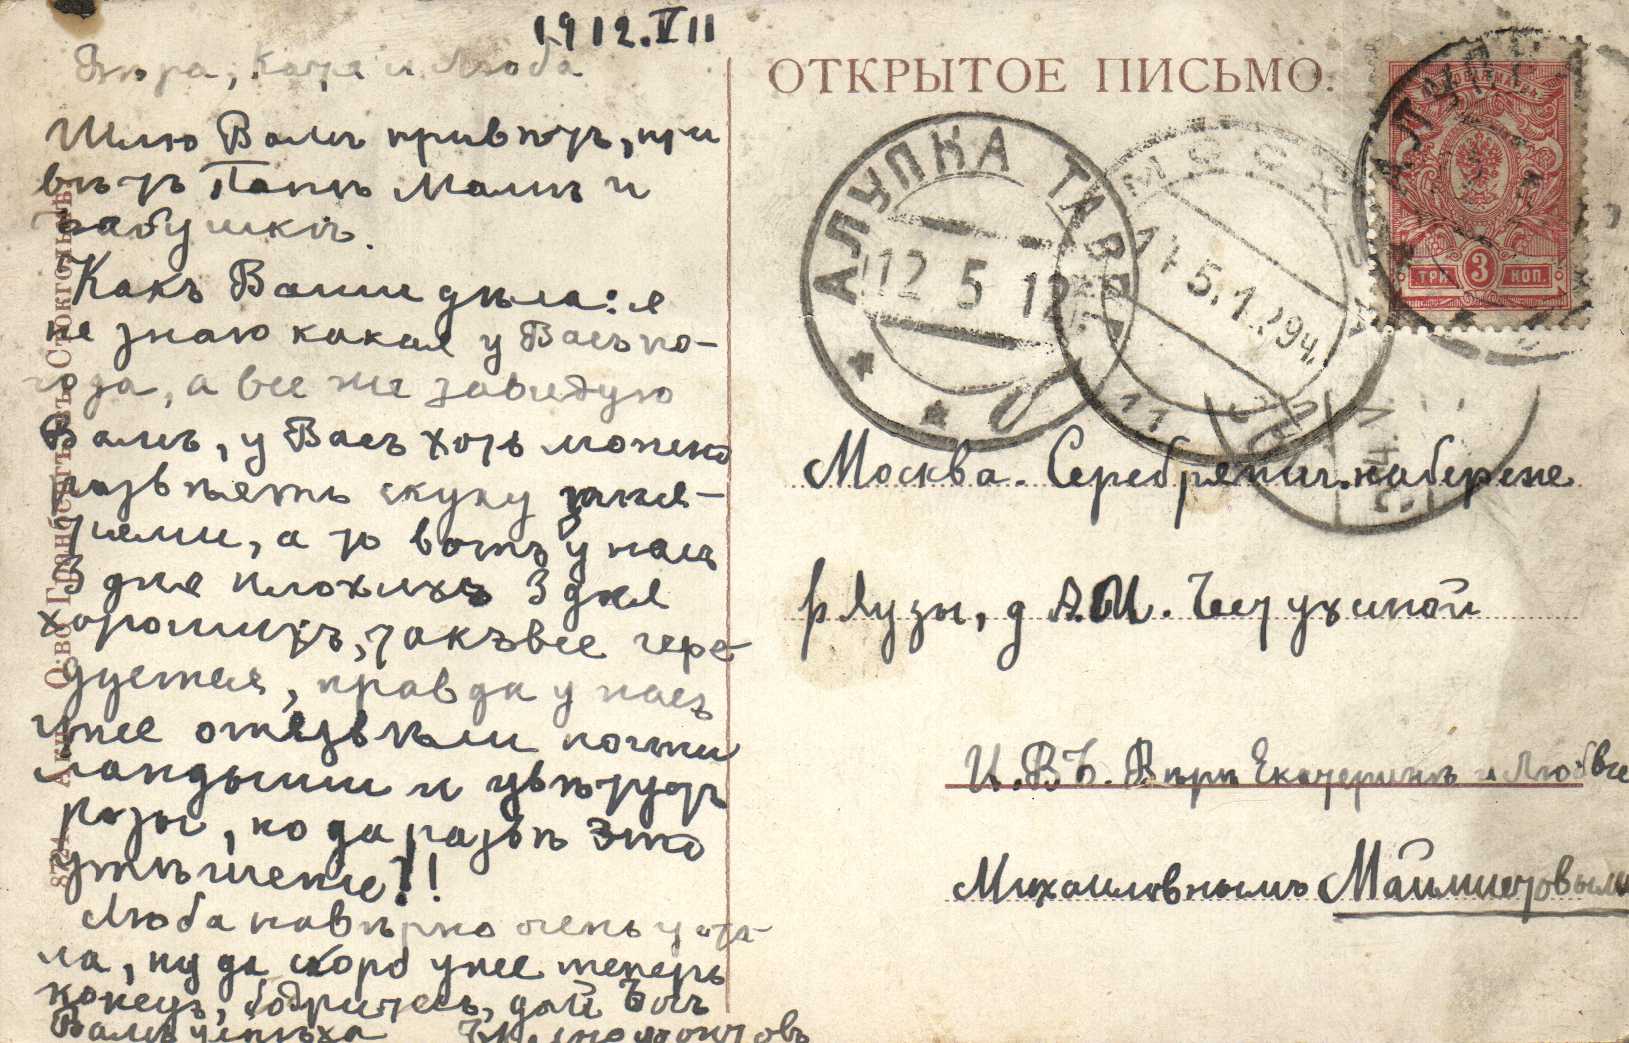 1912.VII
Вѣра, Катя и Люба
Шлю Вамъ привѣтъ, при
вѣтъ Папѣ Мамѣ и
бабушкѣ.
Какъ Ваши дѣла: я
не знаю какая у Васъ по-
года, а все же завидую
Вамъ, у Васъ хоть можно
развѣять скуку заня-
тіями, а то вотъ у насъ
3 дня плохихъ 3 дня
хорошихъ, такъ все чере-
дуется, правда у насъ
уже отцвѣли почти
ландыши и цвѣтутъ
розы, но да развѣ это
утѣшеніе!!
Люба навѣрно очень уста-
ла, ну да скоро уже теперь
конецъ, бодритесь, дай Богъ
Вамъ успѣха
ОТКРЫТОЕ ПИСЬМО.
АЛУПКА ТАВР.
12 5 12
МОСКВА
5.1.29ч.
11
АЛУПКА
ТРИ 3 КОП.
Москва. Серебрянич. набережн
р Яузы, д А.И.
И.В.Б. Вѣрѣ Екатеринѣ и Любви
Михайловнымъ
8724 Акц. О-во Гранбергъ въ Стокгольмѣ